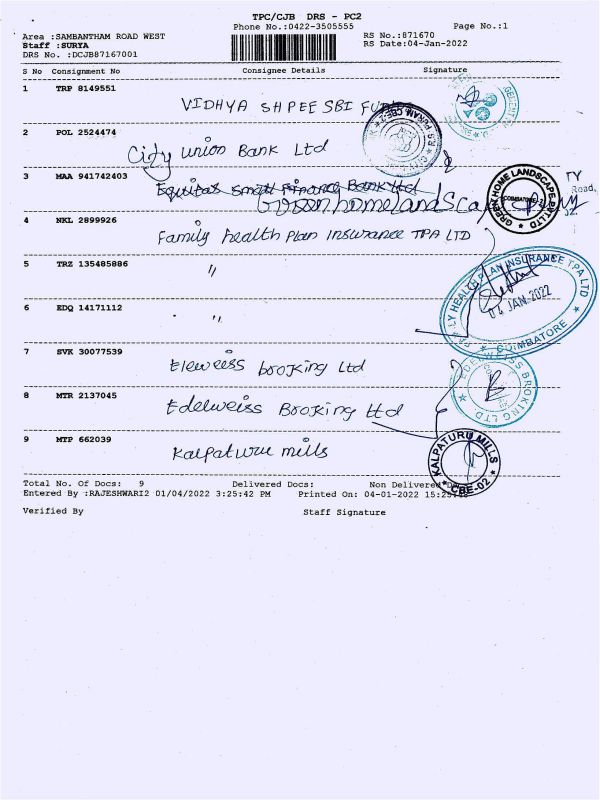 TPC/CJB DRS - PC2
Phone No.:0422-3505555
Page No.:1
Area :SAMBANTHAM ROAD WEST
RS No.:871670
Staff :SURYA
RS Date:04-Jan-2022
DRS No. :DCJB87167001
S No Consignment No Consignee Details Signature
1 TRP 8149551
VIDHYA SHREE SBI
2 POL 2524474
City Union Bank Ltd
3 MAA 941742403
Equitas Small Finance Bank Ltd
Green home landscape
GREEN HOME LANDSCAPE PVT LTD
COIMBATORE-2
TY
Road,
4 NKL 2899926
Family health Plan INSURANCE TPA LTD
5 TRZ 135485886
"
6 EDQ 14171112
"
FAMILY HEALTH PLAN INSURANCE TPA LTD
04 JAN 2022
COIMBATORE
7 SVK 30077539
Eleweiss broking Ltd
8 MTR 2137045
Edelweiss Broking Ltd
EDELWEISS BROKING LTD
9 MTP 662039
Kalpaturu mills
KALPATURU MILLS
CBE-02
Total No. Of Docs: 9 Delivered Docs: Non Delivered
Entered By :RAJESHWARI2 01/04/2022 3:25:42 PM Printed On: 04-01-2022
Verified By Staff Signature